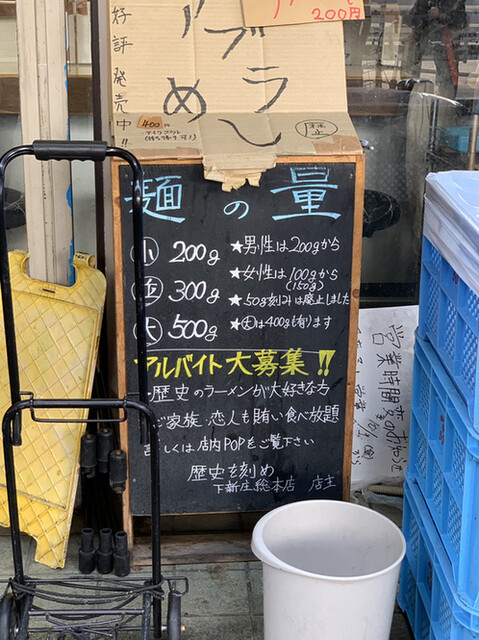 200円
好評発売中!!
アブラめし
400円
テイクアウト
(持ち帰り可!)
歴
麺の量
小 200g ★男性は200gから
並 300g ★女性は100gから
(150g)
★50g刻みは廃止しました
大 500g ★大は400gも有ります
アルバイト大募集!!
歴史のラーメンが大好きな方
ご家族・恋人も賄い食べ放題
詳しくは店内POPをご覧下さい
歴史を刻め
下新庄総本店 店主
営業時間変のお知らせ
から